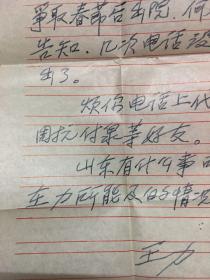 争取春节后出院，何
告知，几次电话没
出了。
烦你电话上代
周抗付泉等好友。
山东有什么事
在力所能及的情况
王力